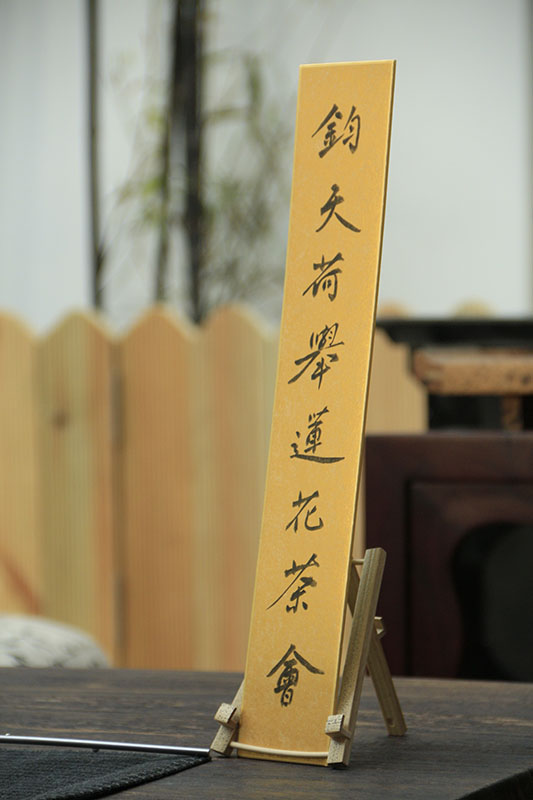 鈞天荷舉蓮花茶會